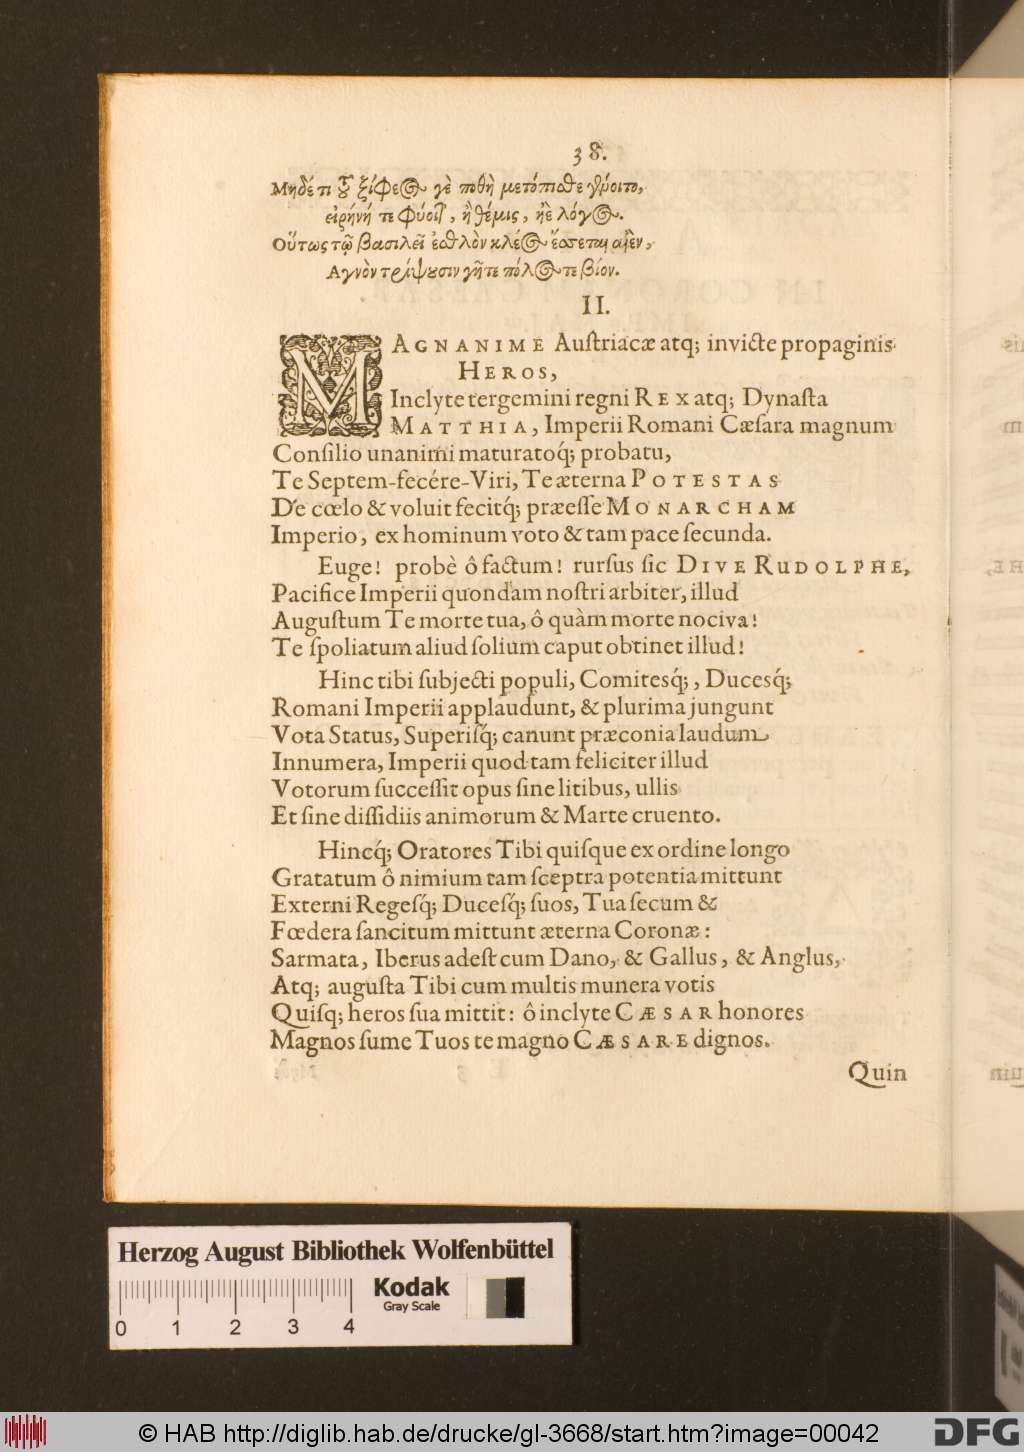 38.
Μηδέ τι τȣ͂ ξίφεος γὲ ποθὴ μετόπισθε γένοιτο,
εἰρήνη τε φύοιτ', ἢ θέμις, ἠὲ λόγος.
Οὕτως τῷ βασιλεῖ ἐσθλὸν κλέος ἔσσεται αἰὲν,
Αγνὸν τρίψȣσιν γῆτε πόλοςτε βίον.
II.
MAGNANIME Auſtriacæ atq; invicte propaginis
HEROS,
Inclyte tergemini regni REX atq; Dynaſta
MATTHIA, Imperii Romani Cæſara magnum
Conſilio unanimi maturatoq́; probatu,
Te Septem-fecére-Viri, Te æterna POTESTAS
De cœlo & voluit fecitq́; præeſſe MONARCHAM
Imperio, ex hominum voto & tam pace ſecunda.
Euge! probè ô factum! rurſus ſic DIVE RUDOLPHE,
Pacifice Imperii quondam noſtri arbiter, illud
Auguſtum Te morte tua, ô quàm morte nociva!
Te ſpoliatum aliud ſolium caput obtinet illud!
Hinc tibi ſubjecti populi, Comitesq́;, Ducesq́;
Romani Imperii applaudunt, & plurima jungunt
Vota Status, Superiſq́; canunt præconia laudum
Innumera, Imperii quod tam feliciter illud
Votorum ſucceſſit opus ſine litibus, ullis
Et ſine diſſidiis animorum & Marte cruento.
Hincq́; Oratores Tibi quiſque ex ordine longo
Gratatum ô nimium tam ſceptra potentia mittunt
Externi Regeſq́; Duceſq́; ſuos, Tua ſecum &
Fœdera ſancitum mittunt æterna Coronæ:
Sarmata, Iberus adeſt cum Dano, & Gallus, & Anglus,
Atq; auguſta Tibi cum multis munera votis
Quiſq; heros ſua mittit: ô inclyte CÆSAR honores
Magnos ſume Tuos te magno CÆSARE dignos.
Quin
Herzog August Bibliothek Wolfenbüttel
Kodak
Gray Scale
0 1 2 3 4
© HAB http://diglib.hab.de/drucke/gl-3668/start.htm?image=00042
DFG